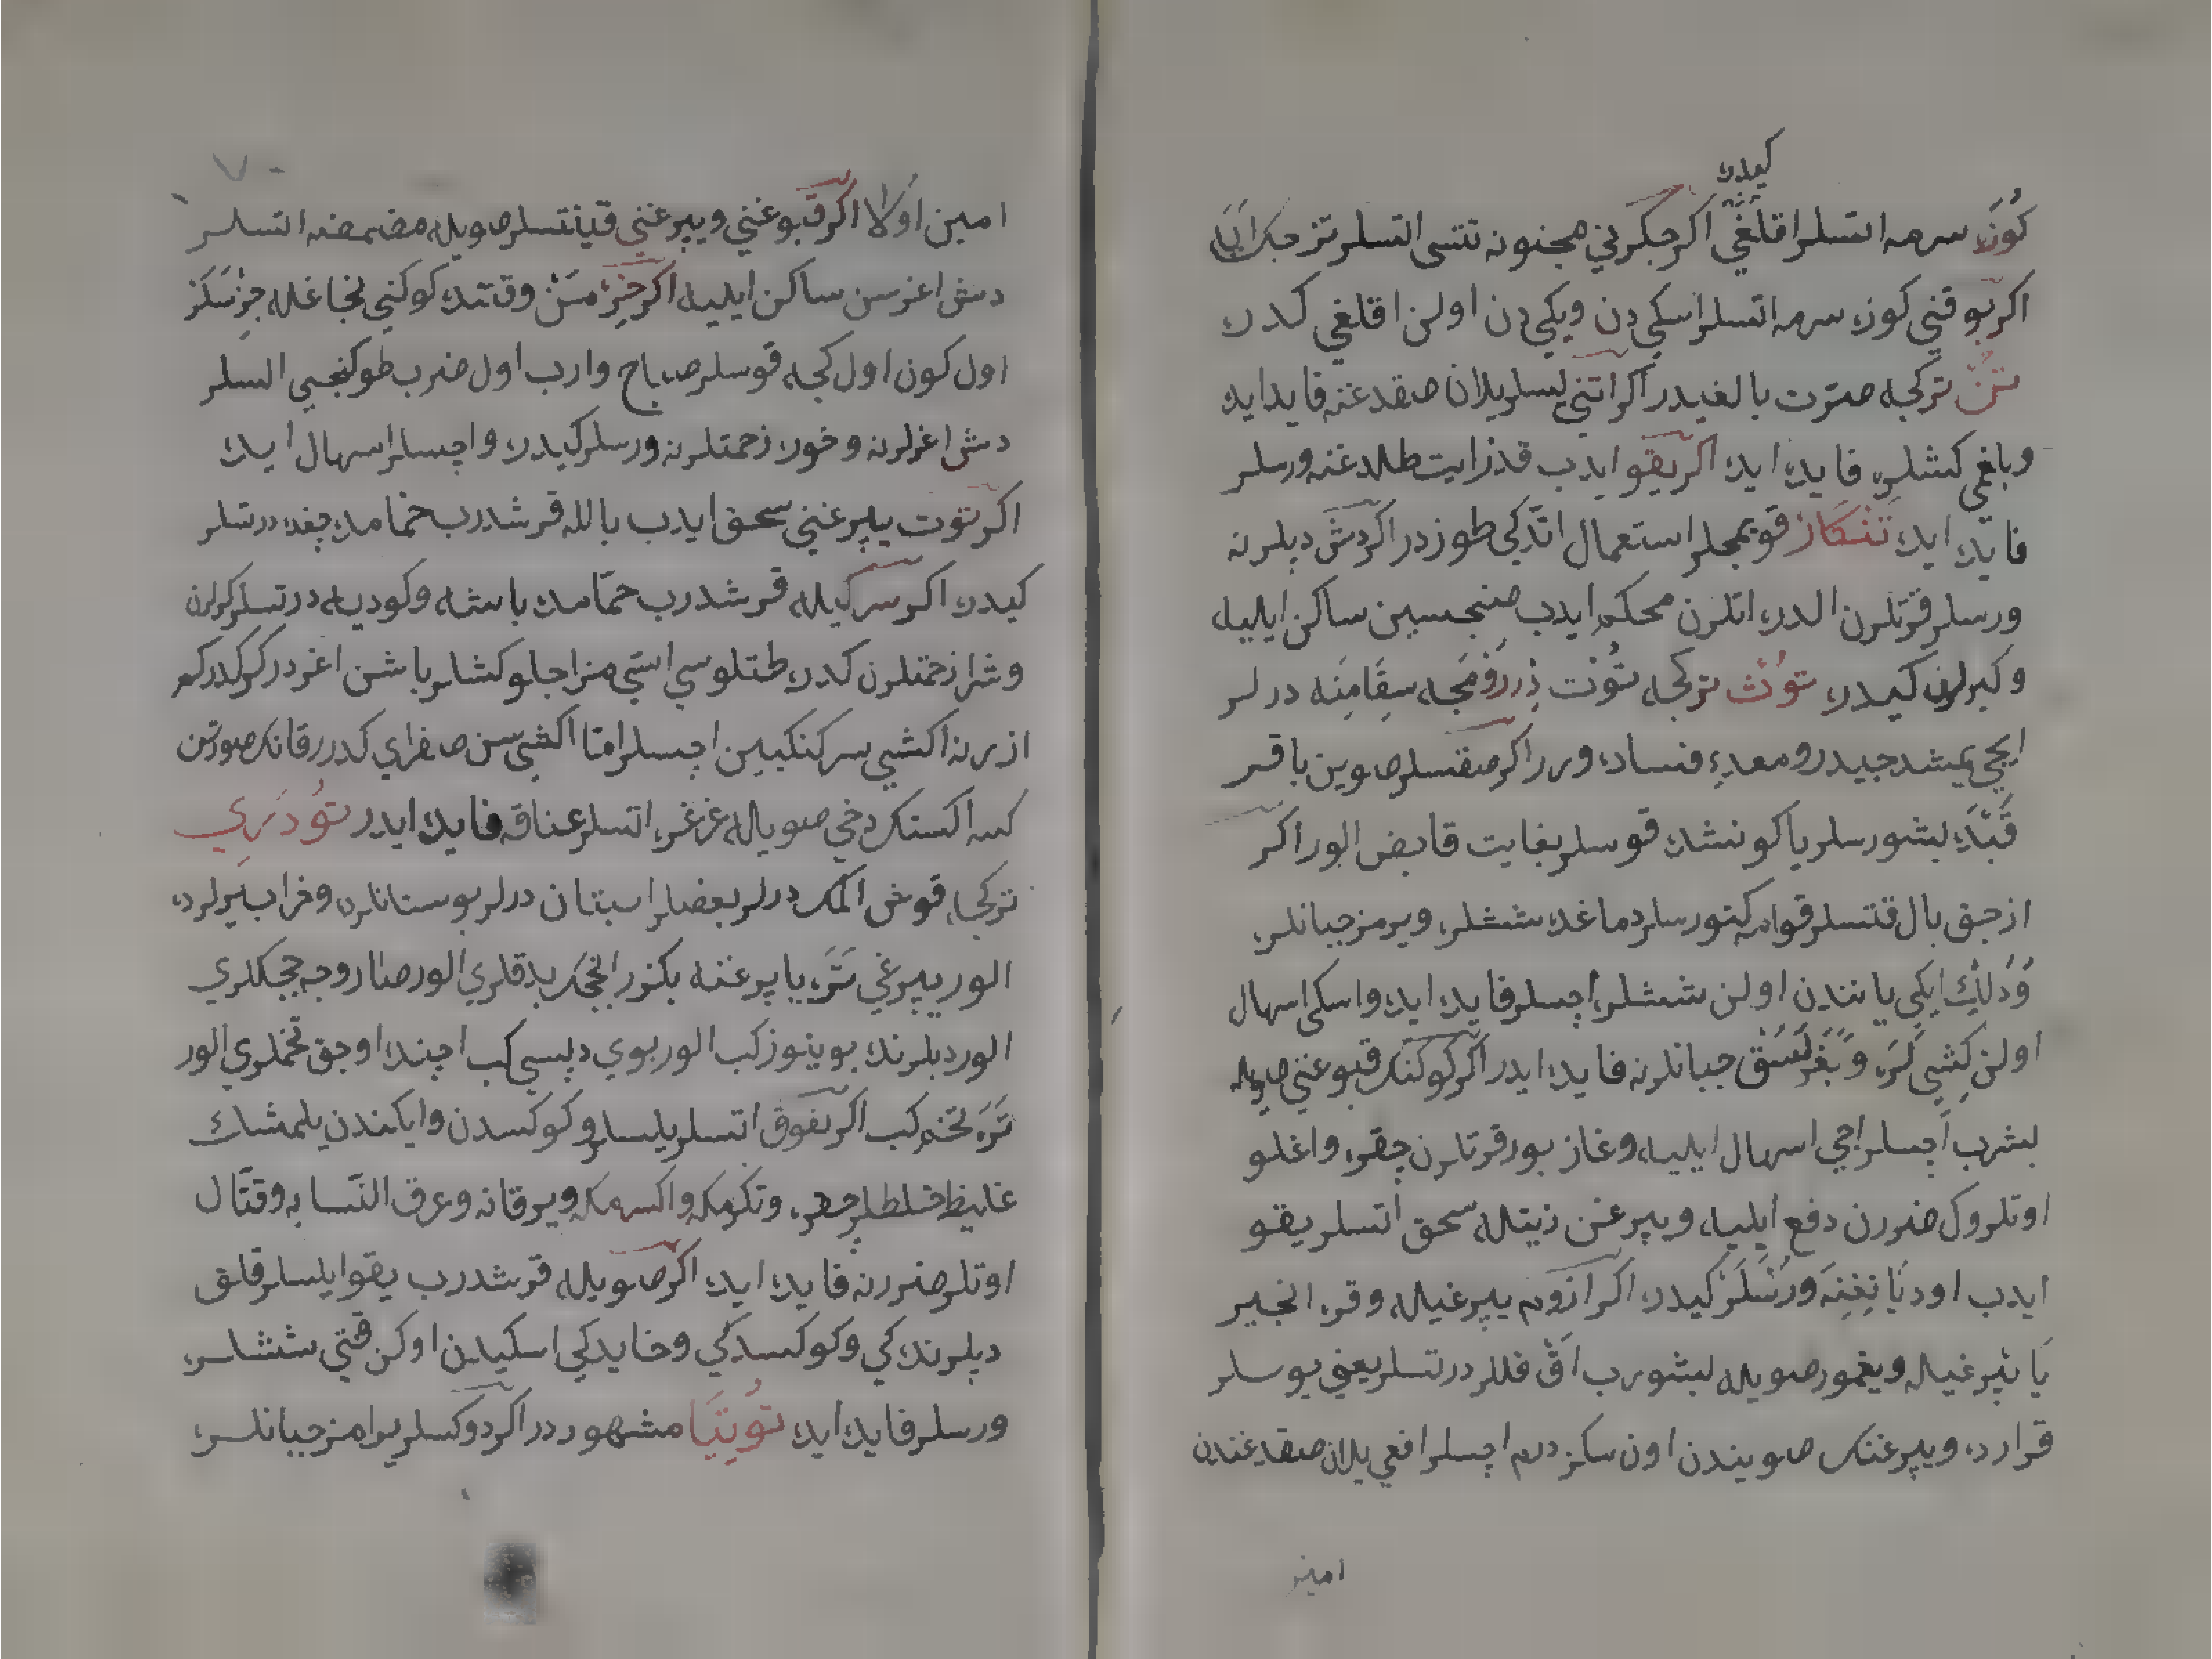 كيدر
كُوزَه سرمه اتسلر اقلغي اكر جكرني مجنونه تتسى اتسلر تز جك
اكر بوقني كوزه سرمه اتسلر اسكي دن ويكي دن اولن اقلغي كدر
تركجه صرت بالغيدر اكر اتني يسلر يلان صقدغنه فايدا ايد
وباغي كشلره فايده ايد اكر يقو ايدب قدز ايت طلدغنه ورسلر
فايده ايد تنكار قويمجلر استعمال اتدكي طوزدر اكر دش دبلرنه
ورسلر قرتلرن الدر اتلرن محكم ايدب صنجسين ساكن ايليه
وكيرلرن كيدر توث تركجه توت دررومجه سقامنه درلر
ايجي يمشد جيدر ومعده فساد ورر اكر صقسلر صوين باقر
قبده بشورسلر يا كونشده قوسلر بغايت قابض الور اكر
ازجق بال قتسلر قوامه كتورسلر دماغده ششلره ويرمز جبانلره
ودليك ايكي يانندن اولن ششلره اچسلر فايده ايد واسكي اسهال
اولن كشي لره وبغرسق جبانلرنه فايده ايدر اكر كوكنك قبوغني صويله
بشرب اچسلر اجي اسهال ايليه وغاز بور قرتلرن چقره واغلو
اوتلروك ضررن دفع ايليه ويپرغن زيتله سحق اتسلر يقو
ايدب اود يانغنه ورسلر كيدر اكر ازوم يپرغيله وقره انجير
يا يپرغيله ويغمور صويله بشورب اق قللر درتسلر يعني يوسلر
قرارد ويپرغنك صويندن اون سكز درم اچسلر افعي يلان صقدغندن
امين
٧٠
امين اولا اكر قبوغني ويپرغني قينتسلر صويله مضمضه اتسلر
دش اغرسن ساكن ايليه اكر وقتنده كوكني بخاغله
اول كون اول كجه قوسلر صباح وارب اول ضرب طوكنجيي السلر
دش اغرلرنه وخوره زحمتلرنه ورسلر كيدر واچسلر اسهال ايد
اكر توت يپرغني سحق ايدب بالله قرشدرب حمامده چغده درتسلر
كيدر اكر سركيله قرشدرب حمامده باشه وكوديه درتسلر كرلرن
وشرا زحمتلرن كدر طتلوسي اسي مزاجلو كشلر باشن اغردر كركدركه
ازرنه اكشي سركنكبين اچسلر امّا اكشي سن صفراي كدرر قانك صورتن
كسه اكسنك دخي صويله غرغره اتسلر عناقه فايده ايدر تودري
تركجه قوش اتمك درلر بعضلر اسبتان درلر بوستانلرده وخراب يرلرده
الور يپرغي تره يا پرغنه بكزر انجك بدقلري الور صارو چچكلري
الور دبلرنده بوينوز كب الور بوي دپسي كب اچنده اوجق تخملري الور
تره تخم كب اكر يقوق اتسلر يلسلر كوكسدن وايكندن يلمشك
غليظ خلطلر چقره وتكرمكه واكسرمكه ويرقانه وعرق النسا يه وقتال
اوتلر ضررنه فايده ايد اكر صويله قرشدرب يقو ايلسلر قلق
دبلرنده كي وكوكسدكي وخايدكي اسكيدن اوكن قتي ششلره
ورسلر فايده ايد توتيا مشهوردر اكر دوكسلر يرامز جبانلره